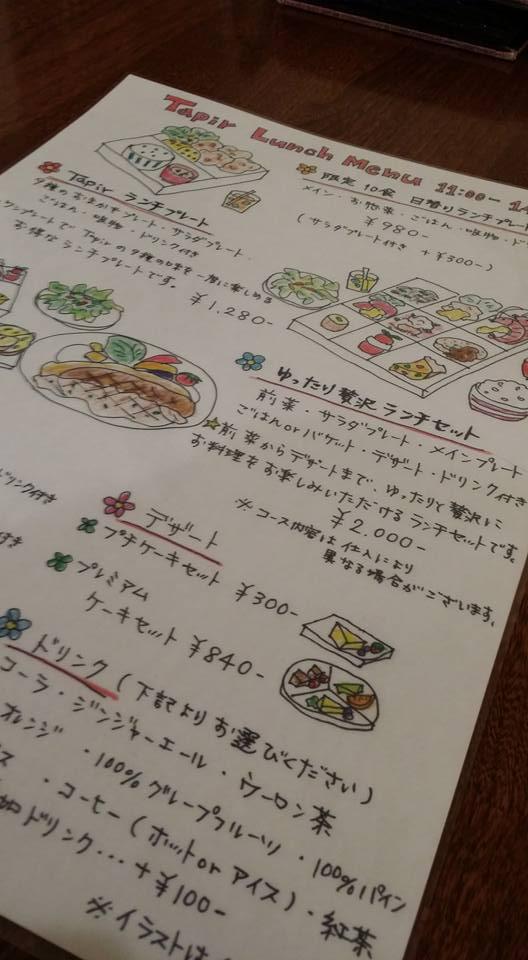 Tapir Lunch Menu 11:00ー14
限定10食 日替りランチプレート
メイン・お惣菜・ごはん・吸物・ド
¥980-
(サラダプレート付き +¥300-)
Tapir ランチプレート
9種のおまかせプレート・サラダプレート・
ごはん・吸物・ドリンク付き
ワンプレートで Tapirの9種の味を一度に楽しめる
お得なランチプレートです。
¥1,280-
ゆったり贅沢ランチセット
前菜・サラダプレート・メインプレート
ごはんorバゲット・デザート・ドリンク付き
☆前菜からデザートまで、ゆったりと贅沢に
お料理をお楽しみいただけるランチセットです。
¥2,000-
※コース内容は仕入により
異なる場合がございます。
ドリンク付き
付き
デザート
プチケーキセット ¥300-
プレミアム
ケーキセット ¥840-
ドリンク(下記よりお選びください)
コーラ・ジンジャーエール・ウーロン茶
オレンジ ・100%グレープフルーツ・100%パイン
ス ・コーヒー(ホットorアイス)・紅茶
加ドリンク…+¥100-
※イラストは